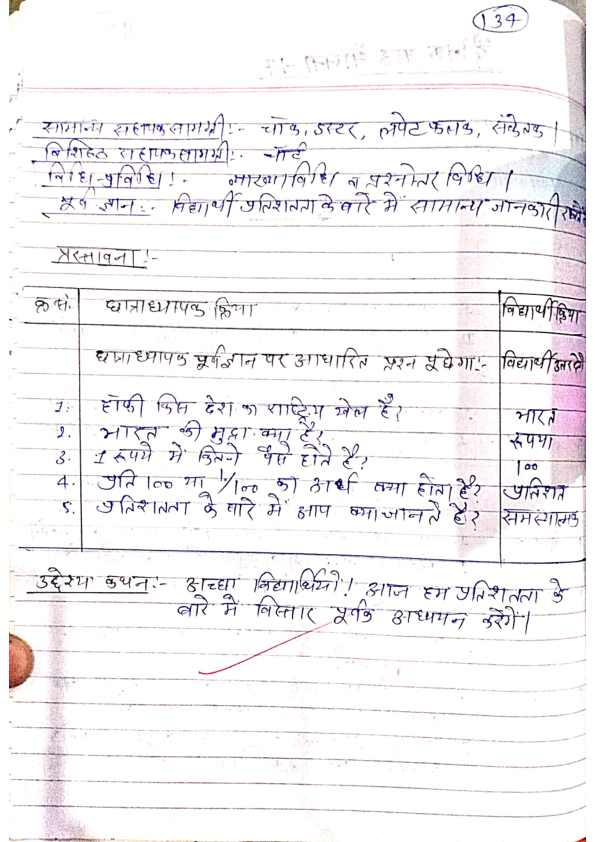 134
सामान्य सहायक सामग्री:- चॉक, डस्टर, लपेट फलक, संकेतक।
विशिष्ट सहायक सामग्री:- चार्ट
विधि-प्रविधि:- व्याख्या विधि व प्रश्नोत्तर विधि।
पूर्व ज्ञान:- विद्यार्थी प्रतिशतता के बारे में सामान्य जानकारी रखते हैं
प्रस्तावना:-
क्र.सं. छात्राध्यापक क्रिया विद्यार्थी क्रिया
छात्राध्यापक पूर्वज्ञान पर आधारित प्रश्न पूछेगा:- विद्यार्थी उत्तर देंगे
1. हॉकी किस देश का राष्ट्रिय खेल है? भारत
2. भारत की मुद्रा क्या है? रूपया
3. 1 रूपये में कितने पैसे होते है? 100
4. प्रति 100 या 1/100 का अर्थ क्या होता है? प्रतिशत
5. प्रतिशतता के बारे में आप क्या जानते हो? समस्यात्मक
उद्देश्य कथन:- अच्छा विद्यार्थियों! आज हम प्रतिशतता के
बारे में विस्तार पूर्वक अध्ययन करेंगे।